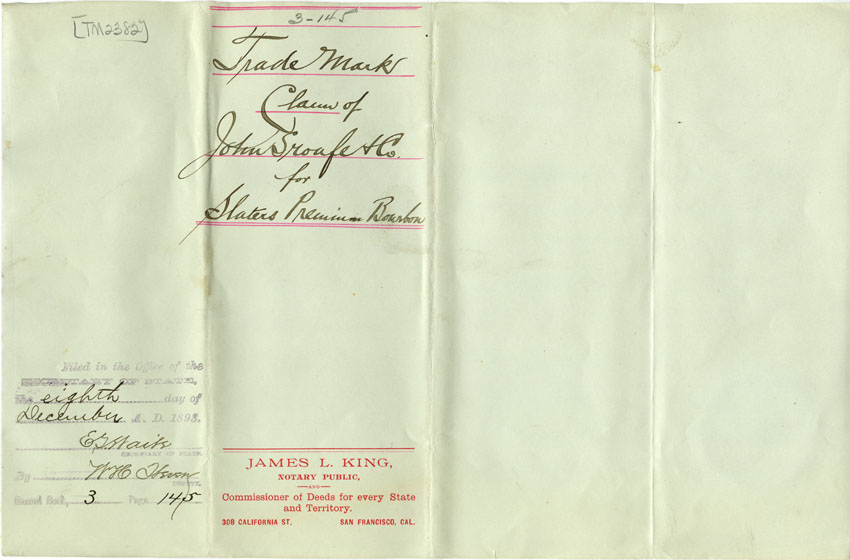 [TM2382]
3-145
Trade Mark
Claim of
John Sroufe & Co.
for
Slaters Premium Bourbon
Filed in the Office of the
SECRETARY OF STATE,
the eighth day of
December A. D. 1893.
E G Waite
SECRETARY OF STATE.
By W H
DEPUTY.
Record Book, 3 Page 145
JAMES L. KING,
NOTARY PUBLIC,
—AND—
Commissioner of Deeds for every State
and Territory.
308 CALIFORNIA ST. SAN FRANCISCO, CAL.